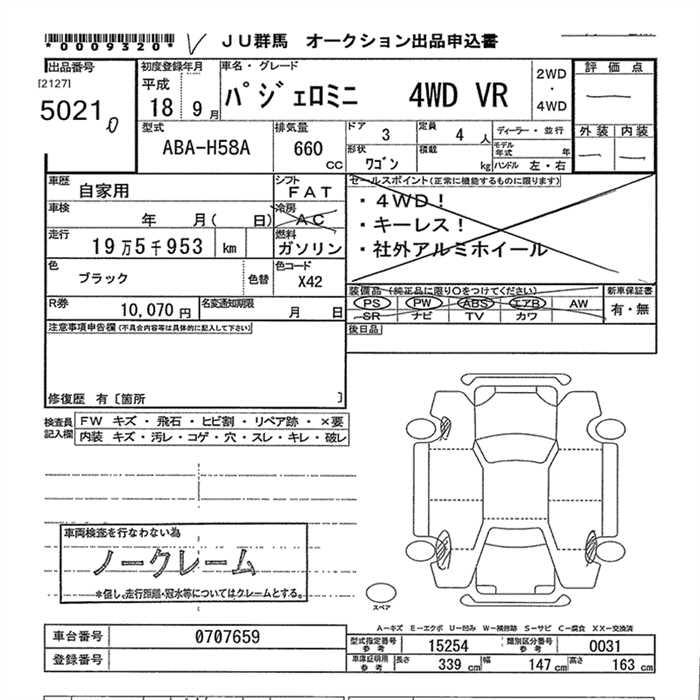 *0009320*
JU群馬 オークション出品申込書
出品番号
[2127]
5021
初度登録年月
平成
18 9月
車名・グレード
パジェロミニ 4WD VR
2WD
・
4WD
評価点
外装 内装
型式
ABA-H58A
排気量
660 CC
ドア 3
定員 4 人
ディーラー・並行
形状 ワゴン
積載 kg
モデル年式 年
ハンドル 左・右
車歴 自家用
シフト FAT
車検 年 月( 日)
冷房 AC
走行 19万5千953 km
燃料 ガソリン
色 ブラック
色替
色コード X42
R券 10,070円
名変通知期限 月 日
セールスポイント(正常に機能するものに限ります)
・4WD!
・キーレス!
・社外アルミホイール
装備品 (純正品に限り○をつけてください)
PS PW ABS エアB AW
SR ナビ TV カワ
新車保証書
有・無
注意事項申告欄 (不具合内容等は具体的に記入して下さい)
後日品
修復歴 有 〔箇所 〕
検査員記入欄
FW キズ・飛石・ヒビ割・リペア跡・×要
内装 キズ・汚レ・コゲ・穴・スレ・キレ・破レ
車両検査を行なわない為
ノークレーム
*但し、走行距離・冠水等についてはクレームとする。
スペア
A−キズ E−エクボ U−凹み W−補修跡 S−サビ C−腐食 XX−交換済
車台番号 0707659
登録番号
型式指定番号 参考 15254
類別区分番号 参考 0031
車庫証明用 参考 長さ 339 cm 幅 147 cm 高さ 163 cm